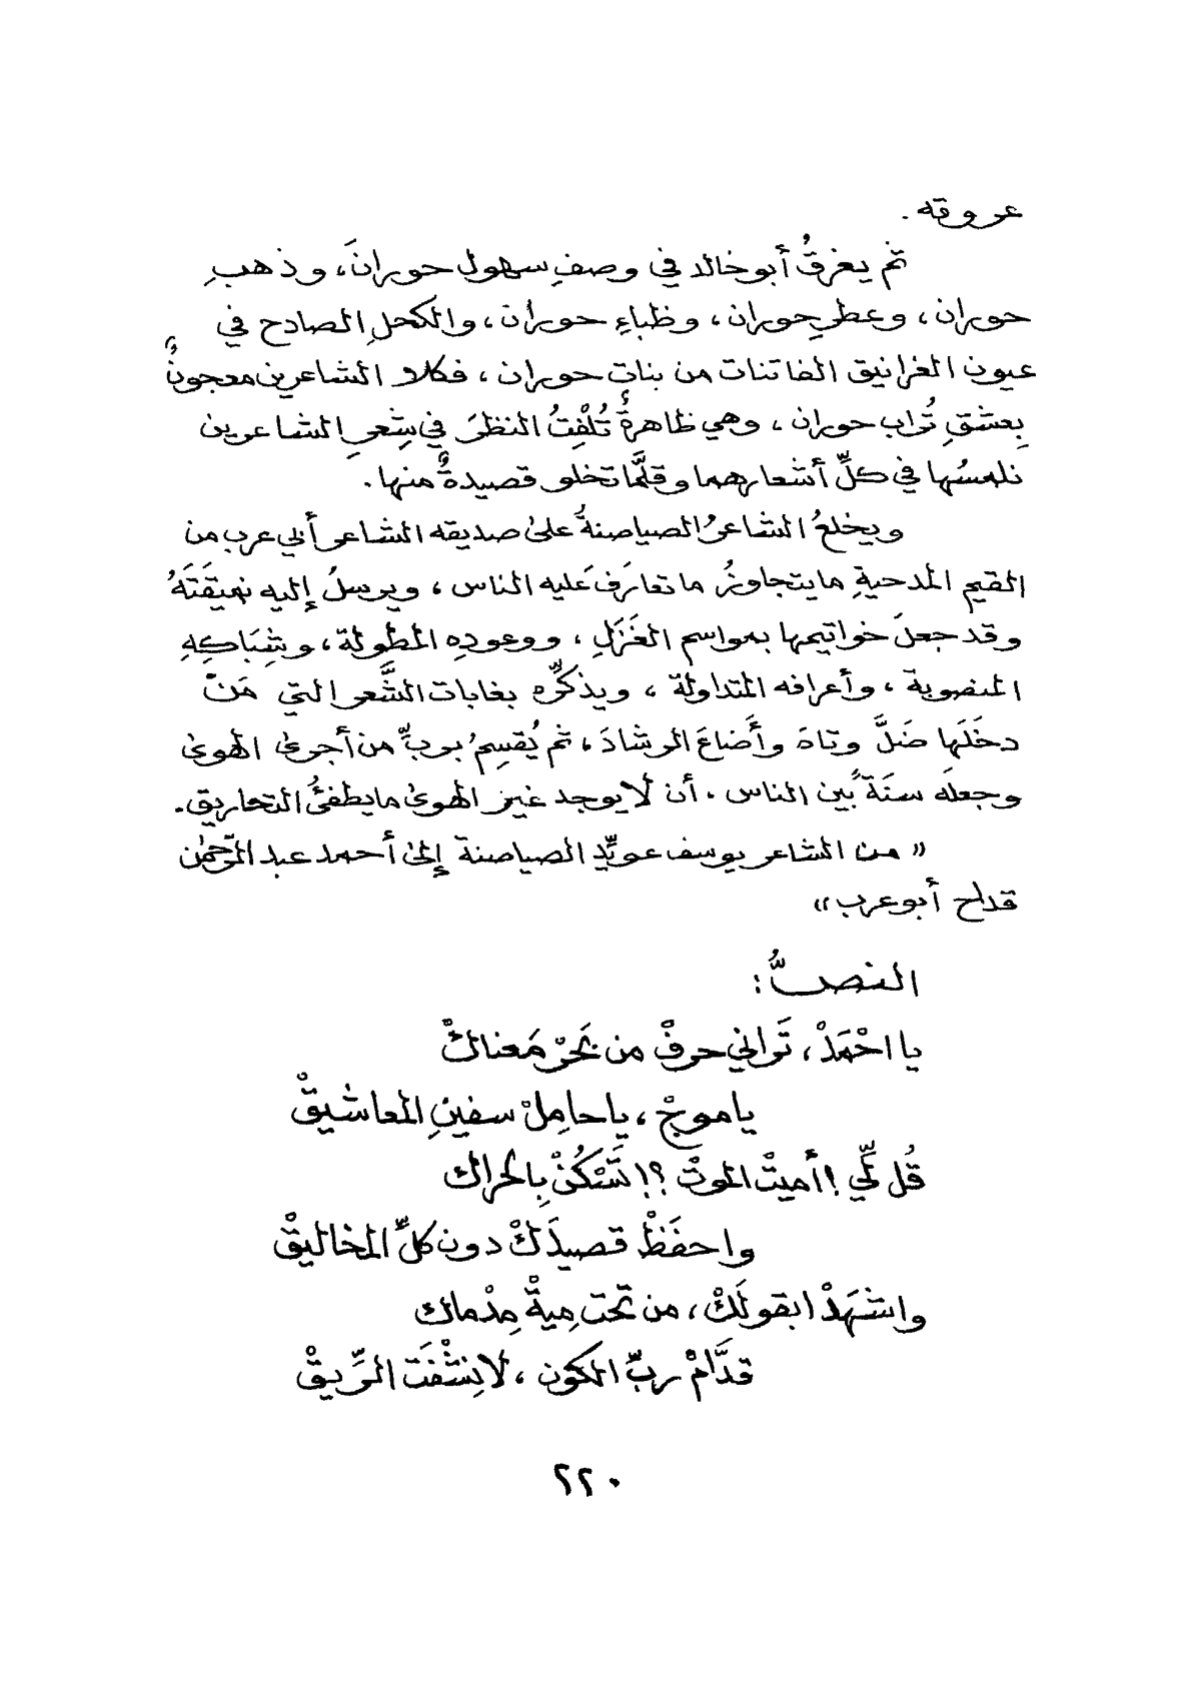 عروقه .
ثم يغرقُ أبو خالد في وصفِ سهول حورانَ، وذهبِ
حوران ، وعطرِ حوران ، وظباءِ حوران ، والكحلِ الصادح في
عيون الغرانيق الفاتنات من بناتِ حوران ، فكلا الشاعرين معجونٌ
بِعشقِ تُراب حوران ، وهي ظاهرةٌ تُلْفِتُ النظرَ في شِعرِ الشاعرين
نلمسُها في كلِّ أشعارهما وقلَّما تخلو قصيدةٌ منها .
ويخلعُ الشاعرُ الصياصنةُ على صديقه الشاعر أبي عرب من
القيم المدحيةِ ما يتجاوزُ ما تعارَفَ عَليه الناس ، ويرسلُ إليه نميقَتَهُ
وقد جعلَ خواتيمها بمواسم الغَزَلِ ، ووعودِه المطولة ، وشِبَاكِهِ
المنصوبة ، وأعرافه المتداولة ، ويذكِّره بغابات الشَّعر التي مَنْ
دخَلَها ضَلَّ وتاهَ وأَضاعَ الرشادَ ، ثم يُقسِمُ بربِّ من أجرى الهوى
وجعلَه سنَةً بين الناس . أن لا يوجد غيرَ الهوى ما يطفئُ التحاريق .
« من الشاعر يوسف عويِّد الصياصنة إلى أحمد عبد الرَّحمٰن
قداح أبو عرب »
النصُّ :
يا احْمَدْ ، تَراني حرفْ من بَحَرْ مَعناكْ
يا موجْ ، يا حامِلْ سفينِ المعاشيقْ
قُل لّي ! أميتْ الموتْ ؟! تَسْكُنْ بِالحراك
واحفَظْ قصيدَكْ دون كلِّ المخاليقْ
واشهَدْ ابقولَكْ ، من تحت مِيةْ مِدْماك
قدَّامْ ربِّ الكون ، لا نِشْفَتَ الرِّيقْ
٢٢٠